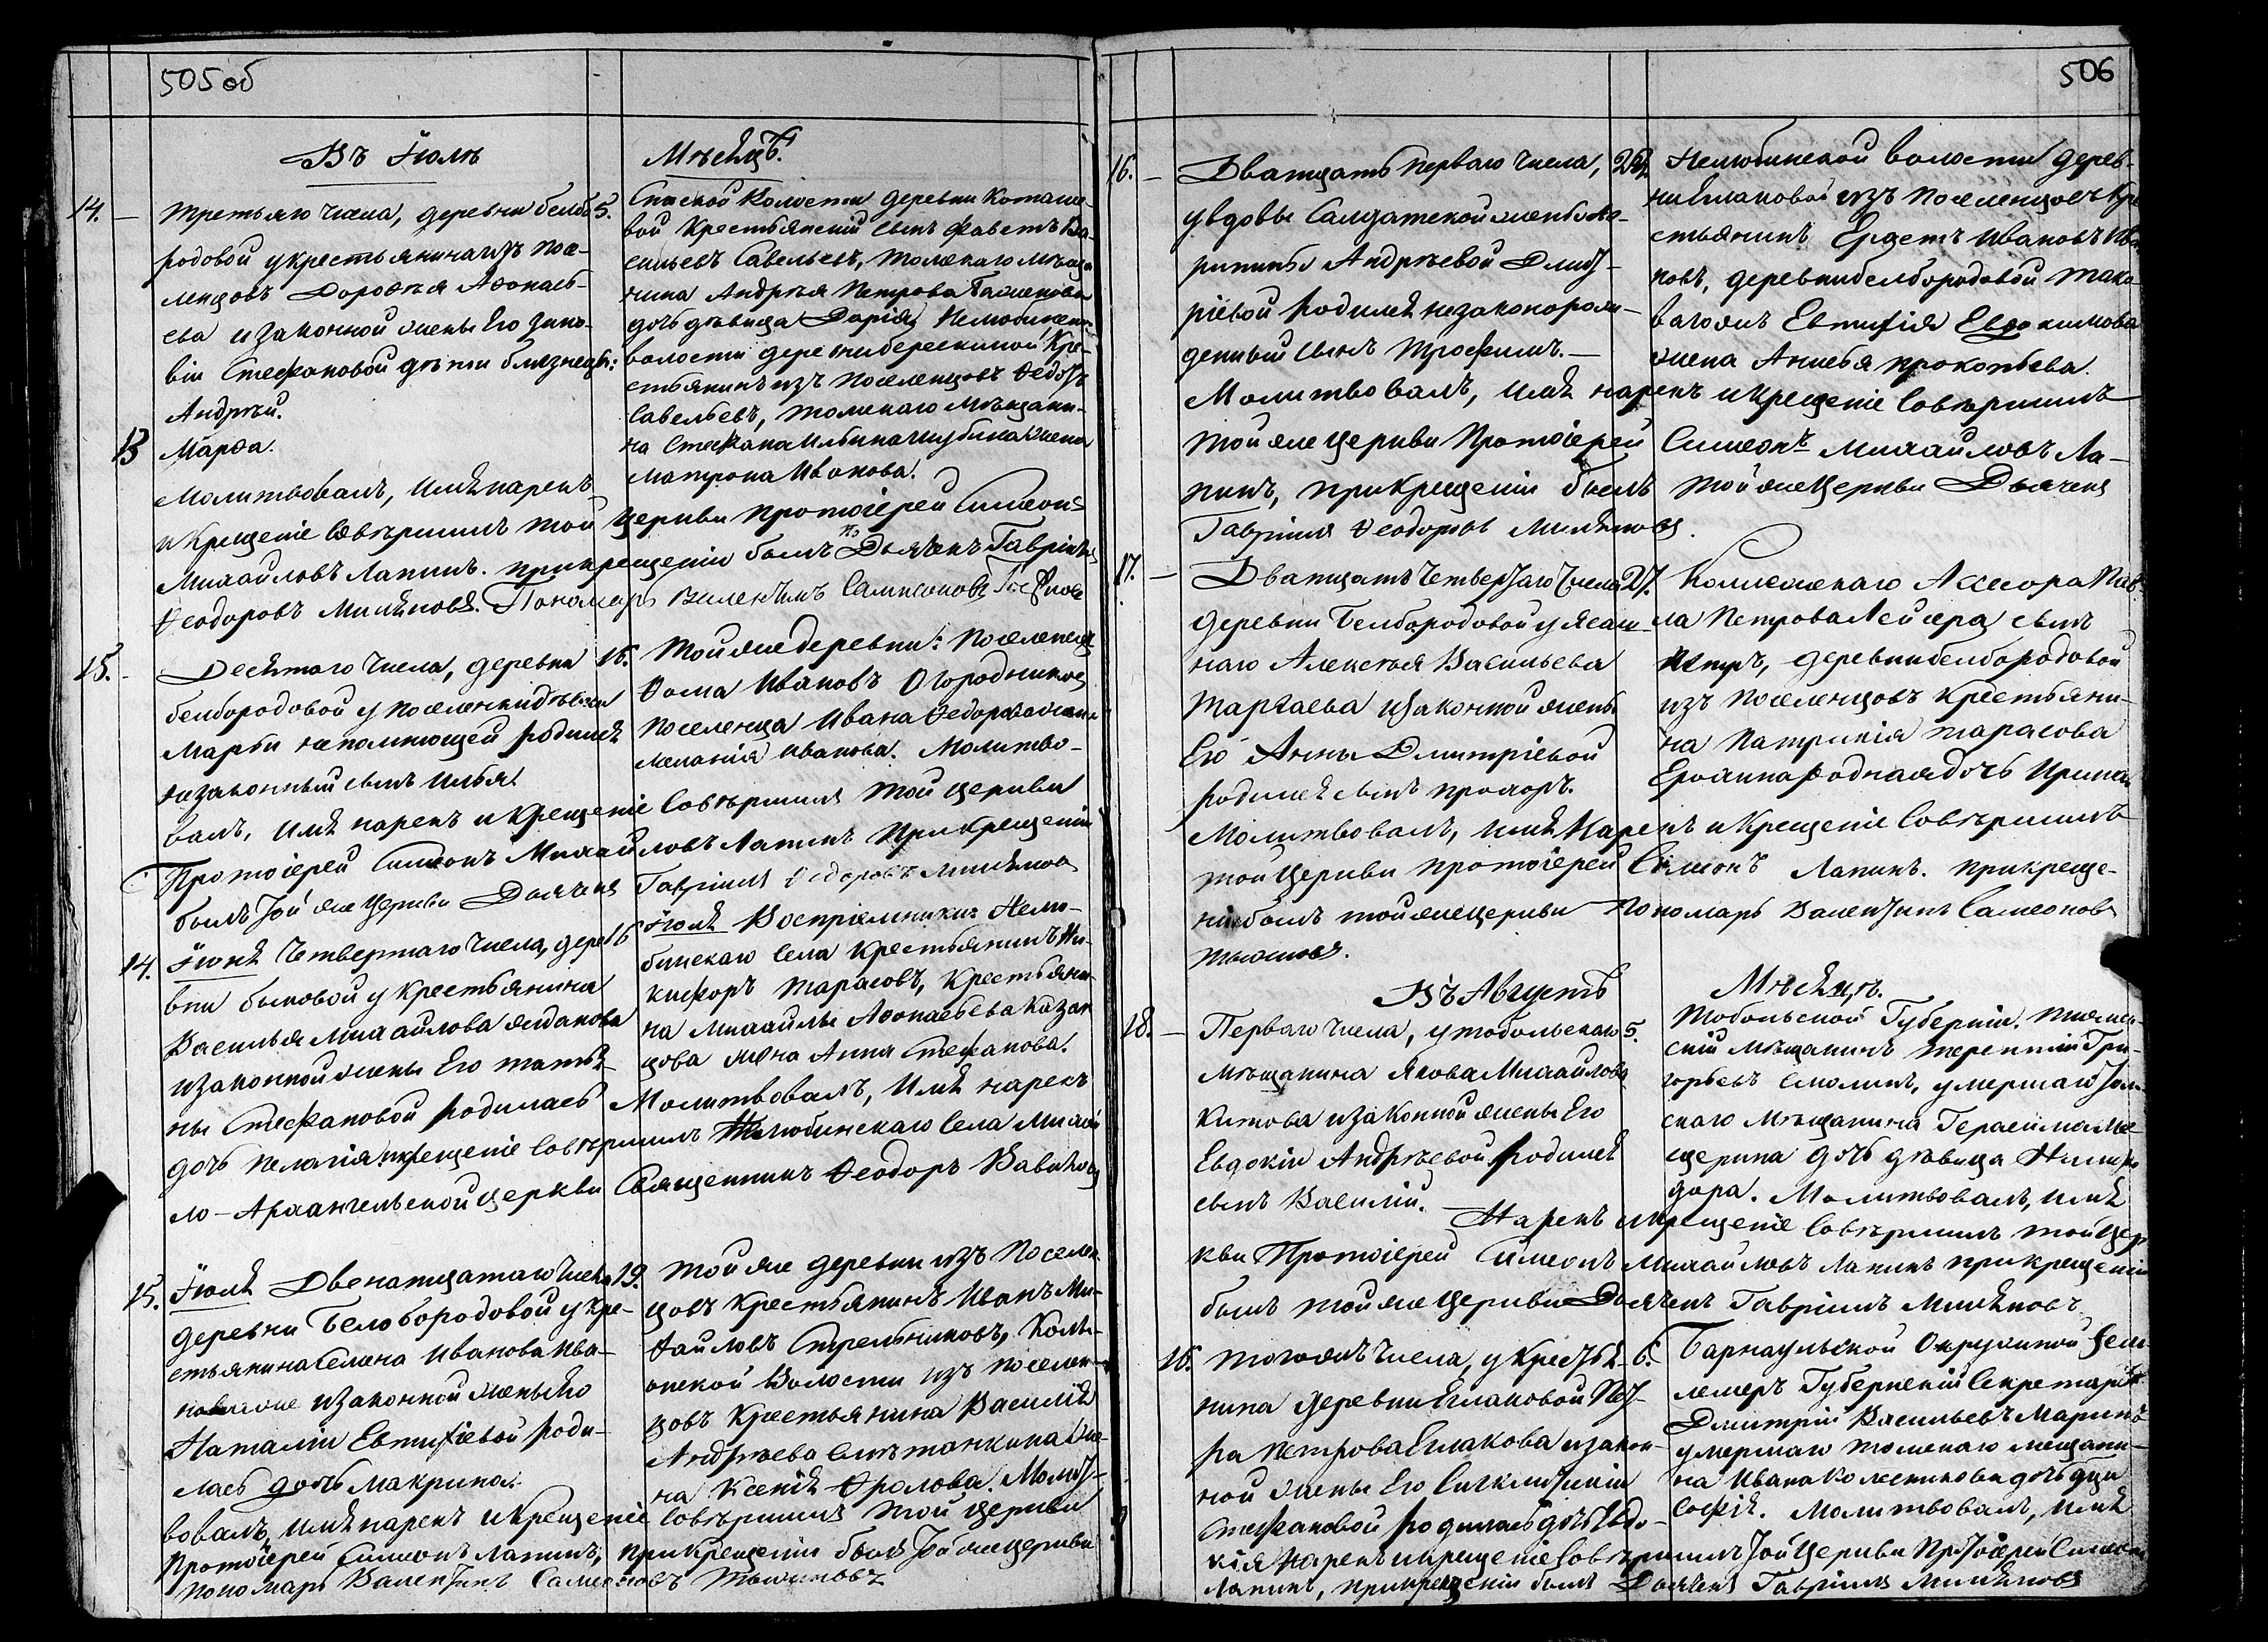 505 об
Въ Іюлѣ
Мѣсяцѣ.
14. — третьяго числа, деревни бело-
родовой у крестьянина изъ посе-
ленцовъ Дороѳея Аѳонась-
ева и законной жены Его Зино-
віи Стефановой дѣти близнецы:
Андрѣй.
13 Марѳа.
5. Спаской волости деревни
вой Крестьянскій сынъ Ва-
сильевъ Савельевъ, томскаго мѣща
нина Андрѣя Петрова
дочь дѣвица Дарія, Нелюбинской
волости деревни берескиной Кре-
стьянинъ изъ поселенцовъ Ѳедотъ
Савельевъ, томскаго мѣщани-
на Стефана Ильина жена
матрона Иванова.
Молитвовалъ, имя нарекъ
и крещеніе совѣршилъ той церкви протоіерей Симеонъ
Михайловъ Лапинъ. при крещеніи былъ Дьячекъ Гавріилъ
Ѳеодоровъ Миляновъ. Пономарь
15. — Десятаго числа, деревни
белбородовой у поселенки дѣвки
Марьи непомнющей родился
незаконный сынъ Илья.
15. той же деревни: Поселенецъ
Ѳома Ивановъ Огородниковъ
поселенца Ивана Ѳедорова жена
меланія иванова. Молитво-
валъ, имя нарекъ и крещеніе совѣршилъ той церкви
Протоіерей Симеонъ Михайловъ Лапинъ при крещеніи
былъ той же церкви Дьячекъ Гавріилъ Ѳедоровъ Миляновъ
14. Іюня Четвертаго числа, дере-
вни быковой у крестьянина
Василья Михайлова жданова
и законной жены Его татья-
ны Стефановой родилась
дочь Пелагія
16 Іюня Воспріемники: Нелю-
бинскаго села Крестьянинъ Ни-
кифоръ тарасовъ, Крестьяни-
на Михайлы Аѳонасьева Казан
цова жена Анна Стефанова.
Молитвовалъ, имя нарекъ
и крещеніе совѣршилъ Нелюбинскаго села Михай-
ло-Архангельской церкви Священникъ Ѳеодоръ Вавиловъ
15. Іюля Двенатцатаго числа
деревни Белобородовой у кре-
стьянина Семена Иванова Ива-
нова и законной жены Его
Наталіи Евтифіевой роди-
лась дочь макрина.
19. той же деревни изъ поселен
цовъ Крестьянинъ Иванъ Ми-
хайловъ Стрельниковъ,
волости изъ поселен-
цовъ Крестьянина Василія
Андрѣева сметанкина же-
на Ксенія Фролова. Молит-
вовалъ, имя нарекъ и крещеніе совѣршилъ той церкви
Протоіерей Симеонъ Лапинъ, при крещеніи былъ той же церкви
пономарь Валентинъ Самсоновъ
506
16. — Дватцать перваго числа,
у вдовы Салдатской жены Ка-
ринины Андрѣевой Дмит-
ріевой родился незаконорож-
денный сынъ трофимъ. —
26. Нелюбинской волости дерев-
ни Еплаковой изъ поселенцовъ кре
стьянинъ Ивановъ Ива
новъ, деревни белбородовой
Евтифія Евдокимова
жена Анисья прокопьева.
Молитвовалъ, имя нарекъ и крещеніе совѣршилъ
той же церкви Протоіерей Симеонъ Михайловъ Ла-
пинъ, при крещеніи былъ той же церкви Дьячекъ
Гавріилъ Ѳеодоровъ Миляновъ.
17. — Дватцать четвертаго числа
деревни Белбородовой у ясаш-
наго Алексѣя Васильева
таргаева и законной жены
Его Анны Дмитріевой
родился сынъ прохоръ.
27. Коллежскаго Ассесора Пав-
ла Петрова сынъ
петръ, деревни белбородовой
изъ поселенцовъ крестьяни-
на Патрикія тарасова
родная дочь Ирина
Молитвовалъ, имя нарекъ и крещеніе совѣршилъ
той церкви протоіерей Симеонъ Лапинъ. при креще-
ніи былъ той же церкви Пономарь Валентинъ Самсоновъ
Въ Августѣ
Мѣсяцѣ.
18. — Перваго числа, у тобольскаго
мѣщанина Якова Михайлова
Китова и законной жены Его
Евдокіи Андрѣевой родился
сынъ Василій.
5. тобольской Губерніи.
скій мѣщанинъ терентій Гри-
горьевъ Смолинъ, умершаго том-
скаго мѣщанина Герасима Ме-
щерина дочь дѣвица Нимфо
дора. Молитвовалъ, имя
Нарекъ и крещеніе совѣршилъ той цер
кви Протоіерей Симеонъ Михайловъ Лапинъ при крещеніи
былъ той же церкви Дьячекъ Гавріилъ Миляновъ.
16. того же числа, у крестья-
нина деревни Еплаковой Пет-
ра Петрова Еплакова и закон-
ной жены Его
Стефановой родилась дочь Евдо-
кія
6. Барнаульской Окружной Зем-
лемеръ Губернскій Секретарь
Дмитрій Васильевъ Маринъ
умершаго томскаго мещани-
на Ивана Колесникова дочь дѣвица
Софія. Молитвовалъ, имя
нарекъ и крещеніе совѣршилъ той церкви Протоіерей Симеонъ
Лапинъ, при крещеніи былъ Дьячекъ Гавріилъ Миляновъ